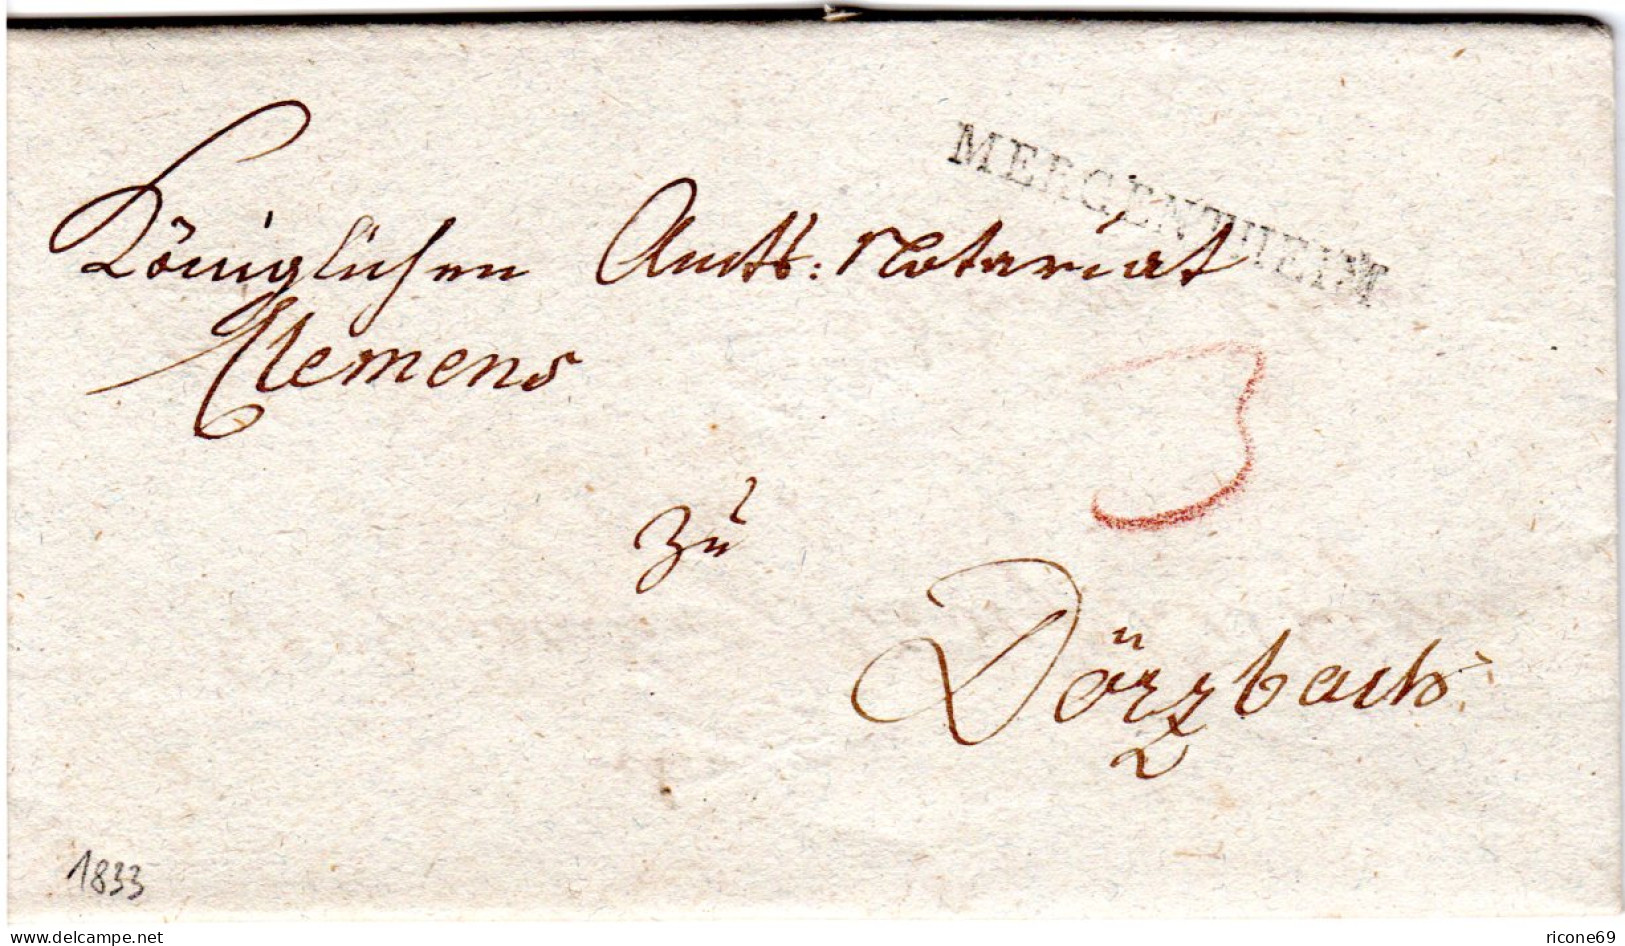 MERGENTHEIM
Königlichen Amts: Notariat
Clemens
3
zu
Dörzbach.
1833
www.delcampe.net
ricone69